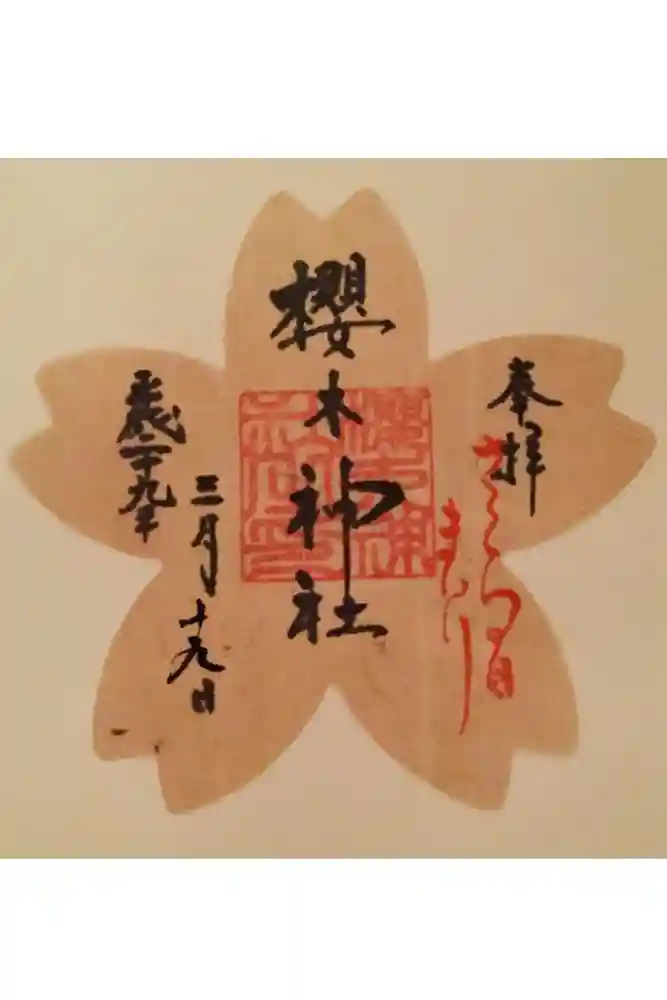 奉拝
さくらの日
まいり
櫻木神社
平成二十九年
三月十九日